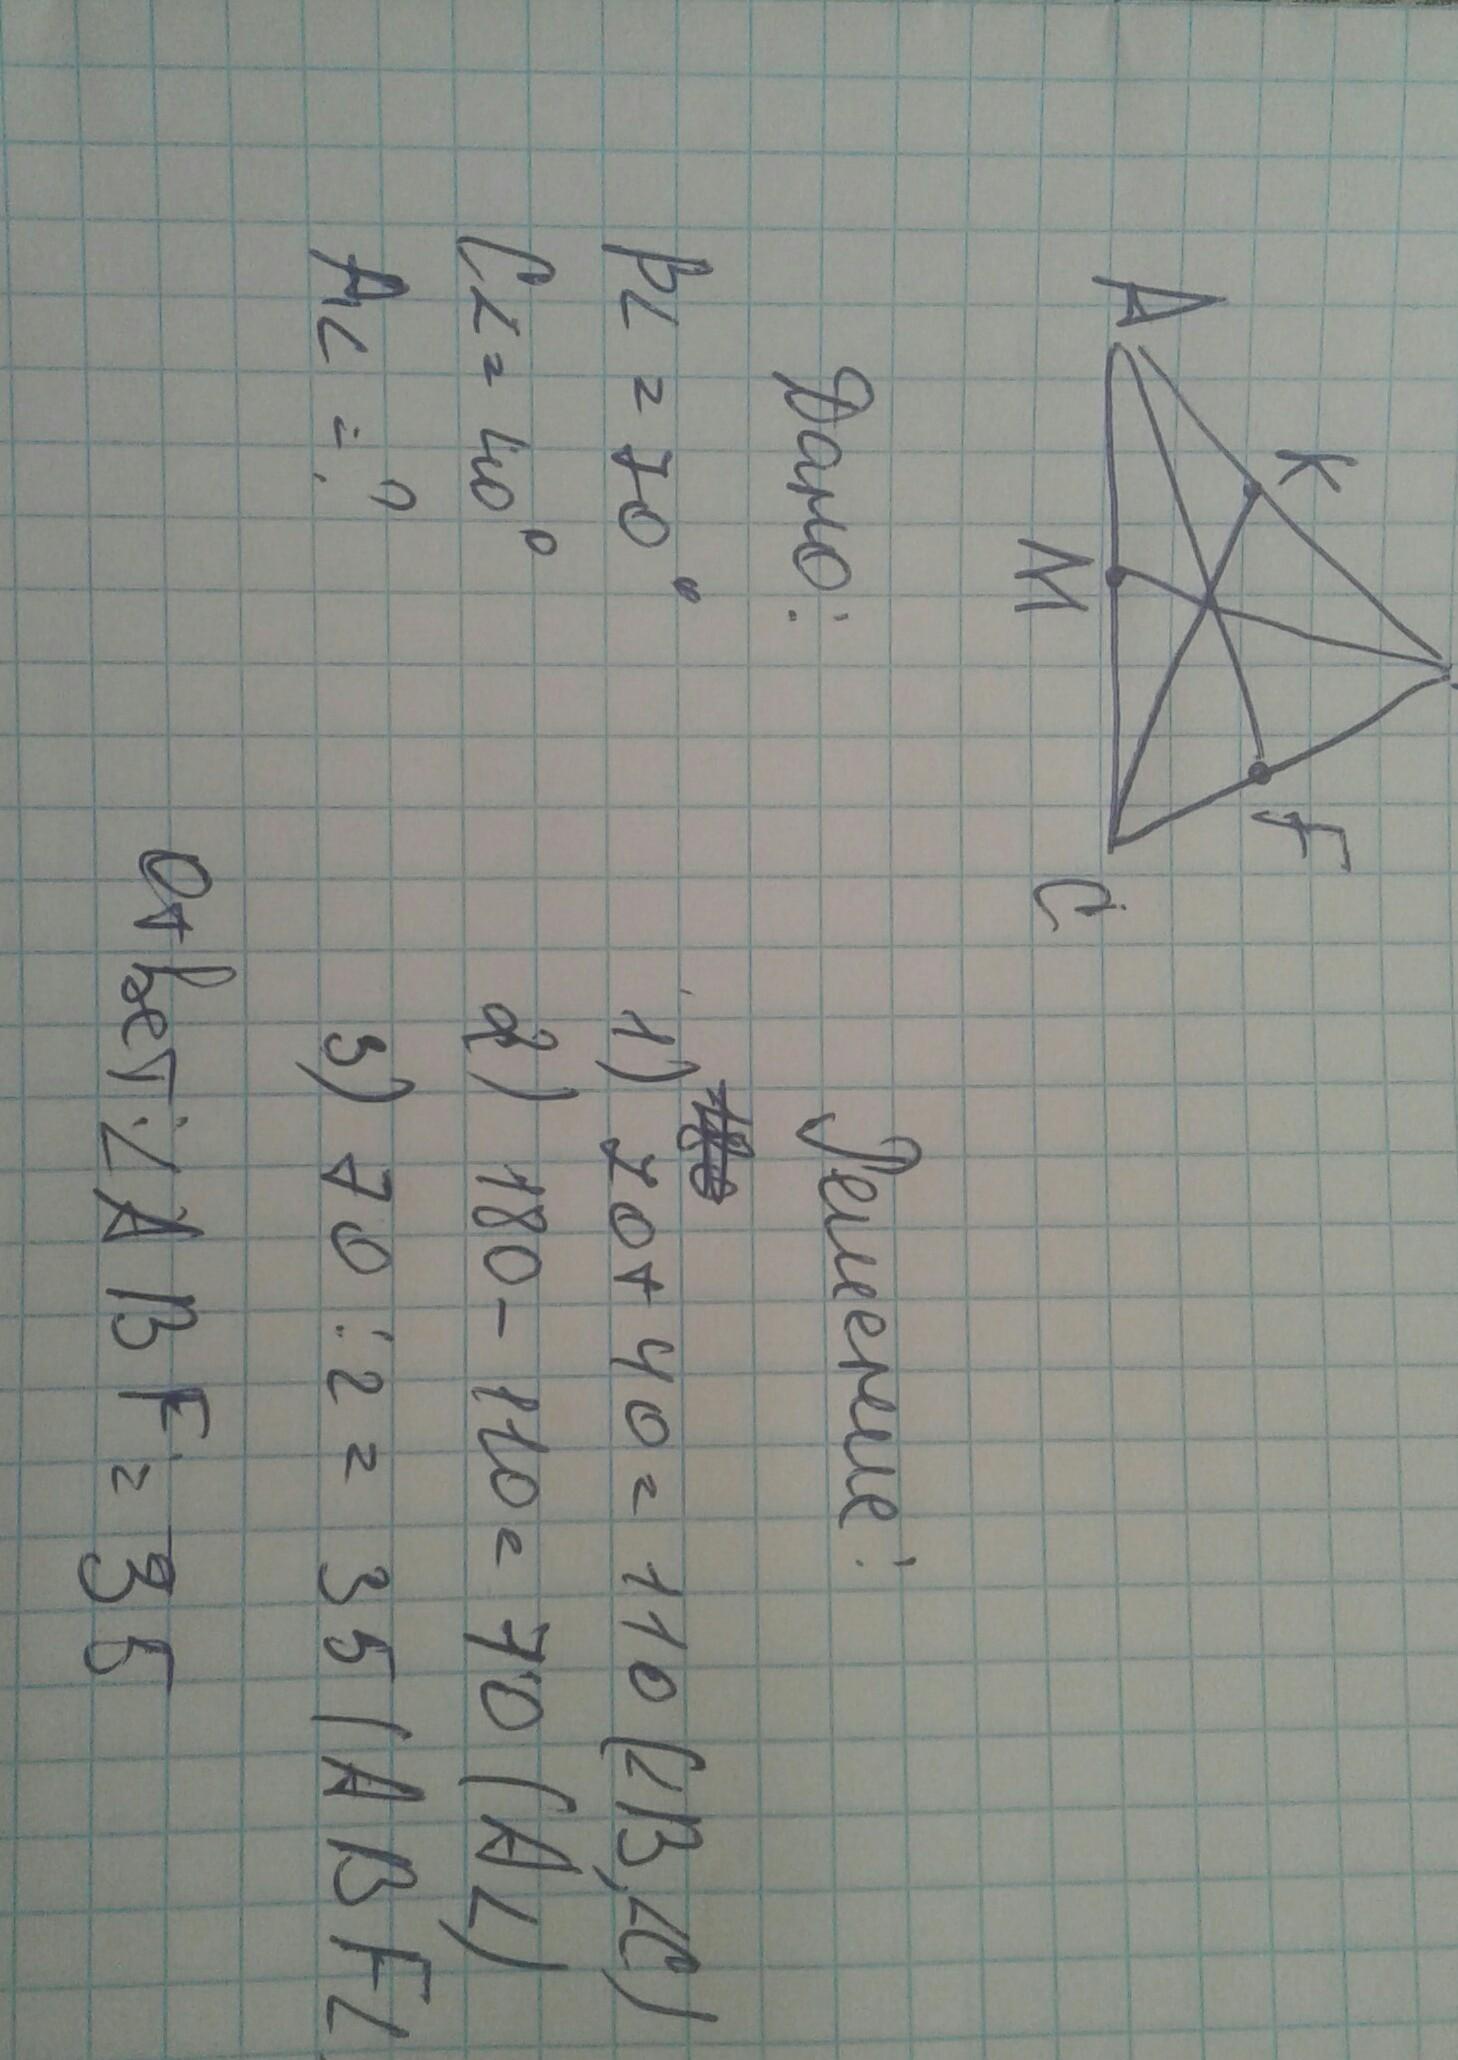 K
F
A
M
C
Дано:
B∠ = 70°
C∠ = 40°
A∠ = ?
Решение:
1) 70+40=110(∠B,∠C)
2) 180-110=70(A∠)
3) 70:2=35(ABF∠
Ответ:∠ABF=35